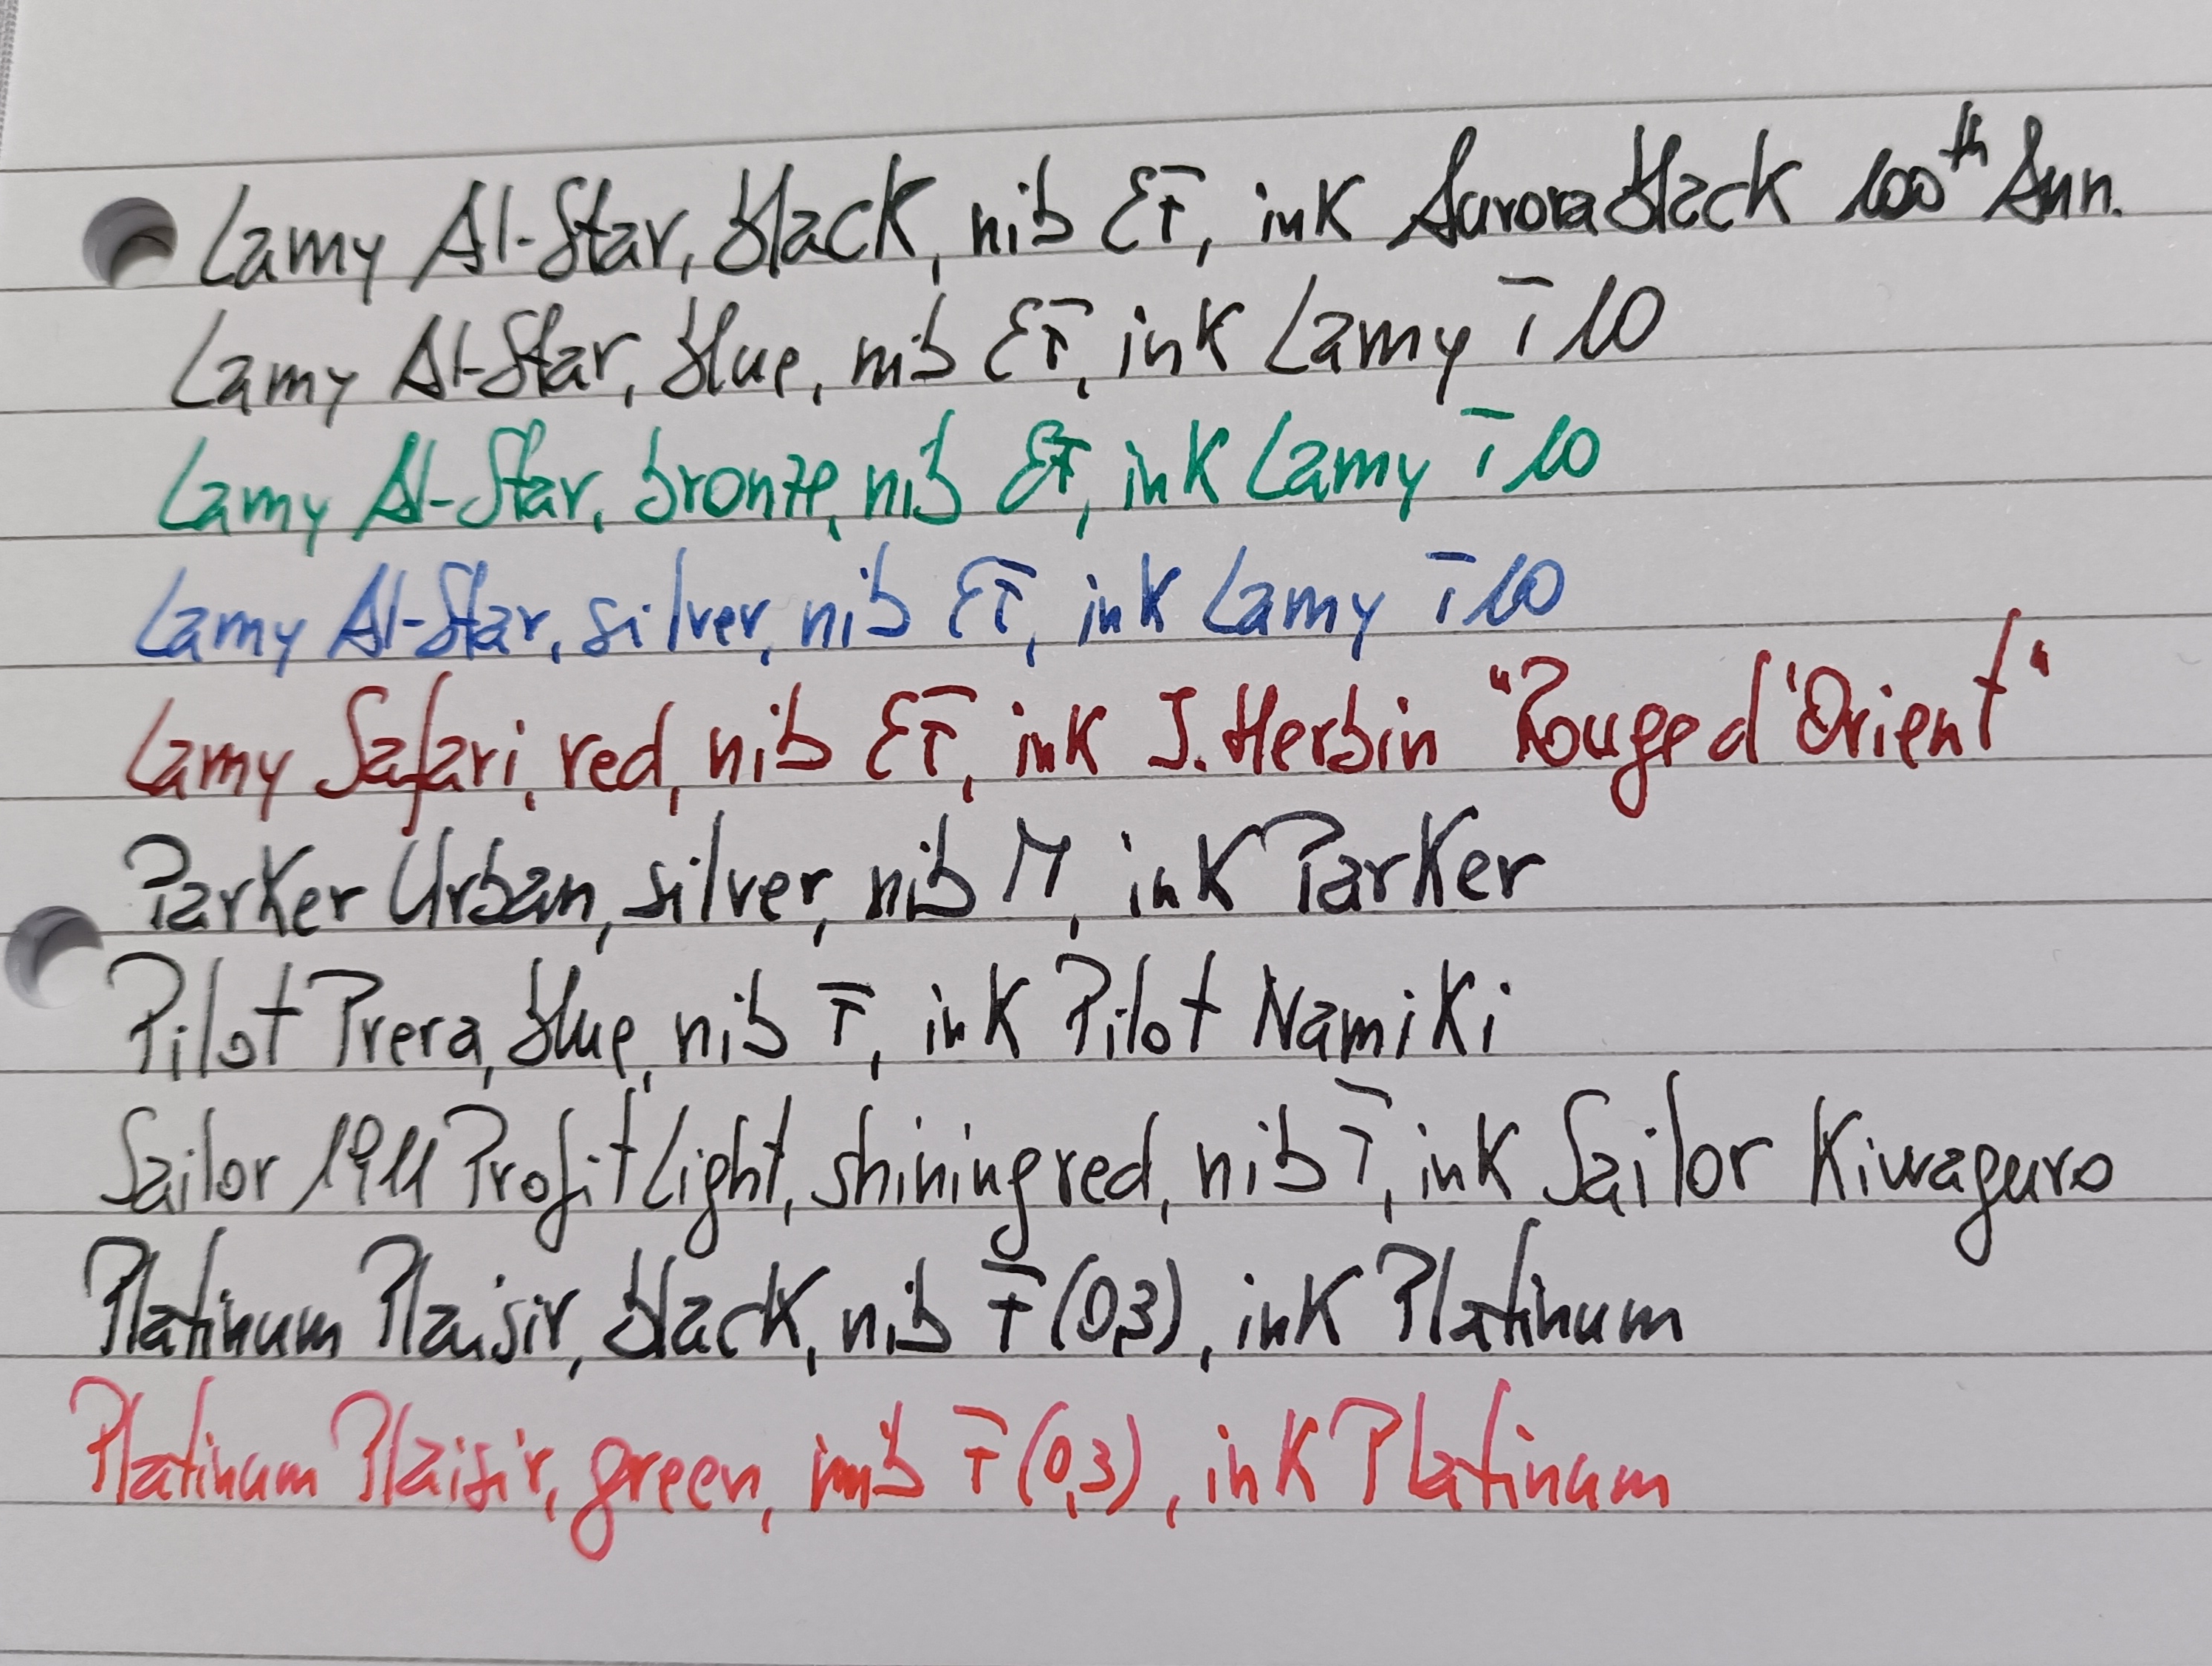 Lamy Al-Star, black, nib EF, ink Aurora black 100th Ann.
Lamy Al-Star, blue, nib EF, ink Lamy T10
Lamy Al-Star, bronze, nib EF, ink Lamy T10
Lamy Al-Star, silver, nib EF, ink Lamy T10
Lamy Safari, red, nib EF, ink J. Herbin "Rouge d'Orient"
Parker Urban, silver, nib M, ink Parker
Pilot Prera, blue, nib F, ink Pilot Namiki
Sailor 1911 Profit Light, shining red, nib F, ink Sailor Kiwaguro
Platinum Plaisir, black, nib F (0,3), ink Platinum
Platinum Plaisir, green, nib F (0,3), ink Platinum